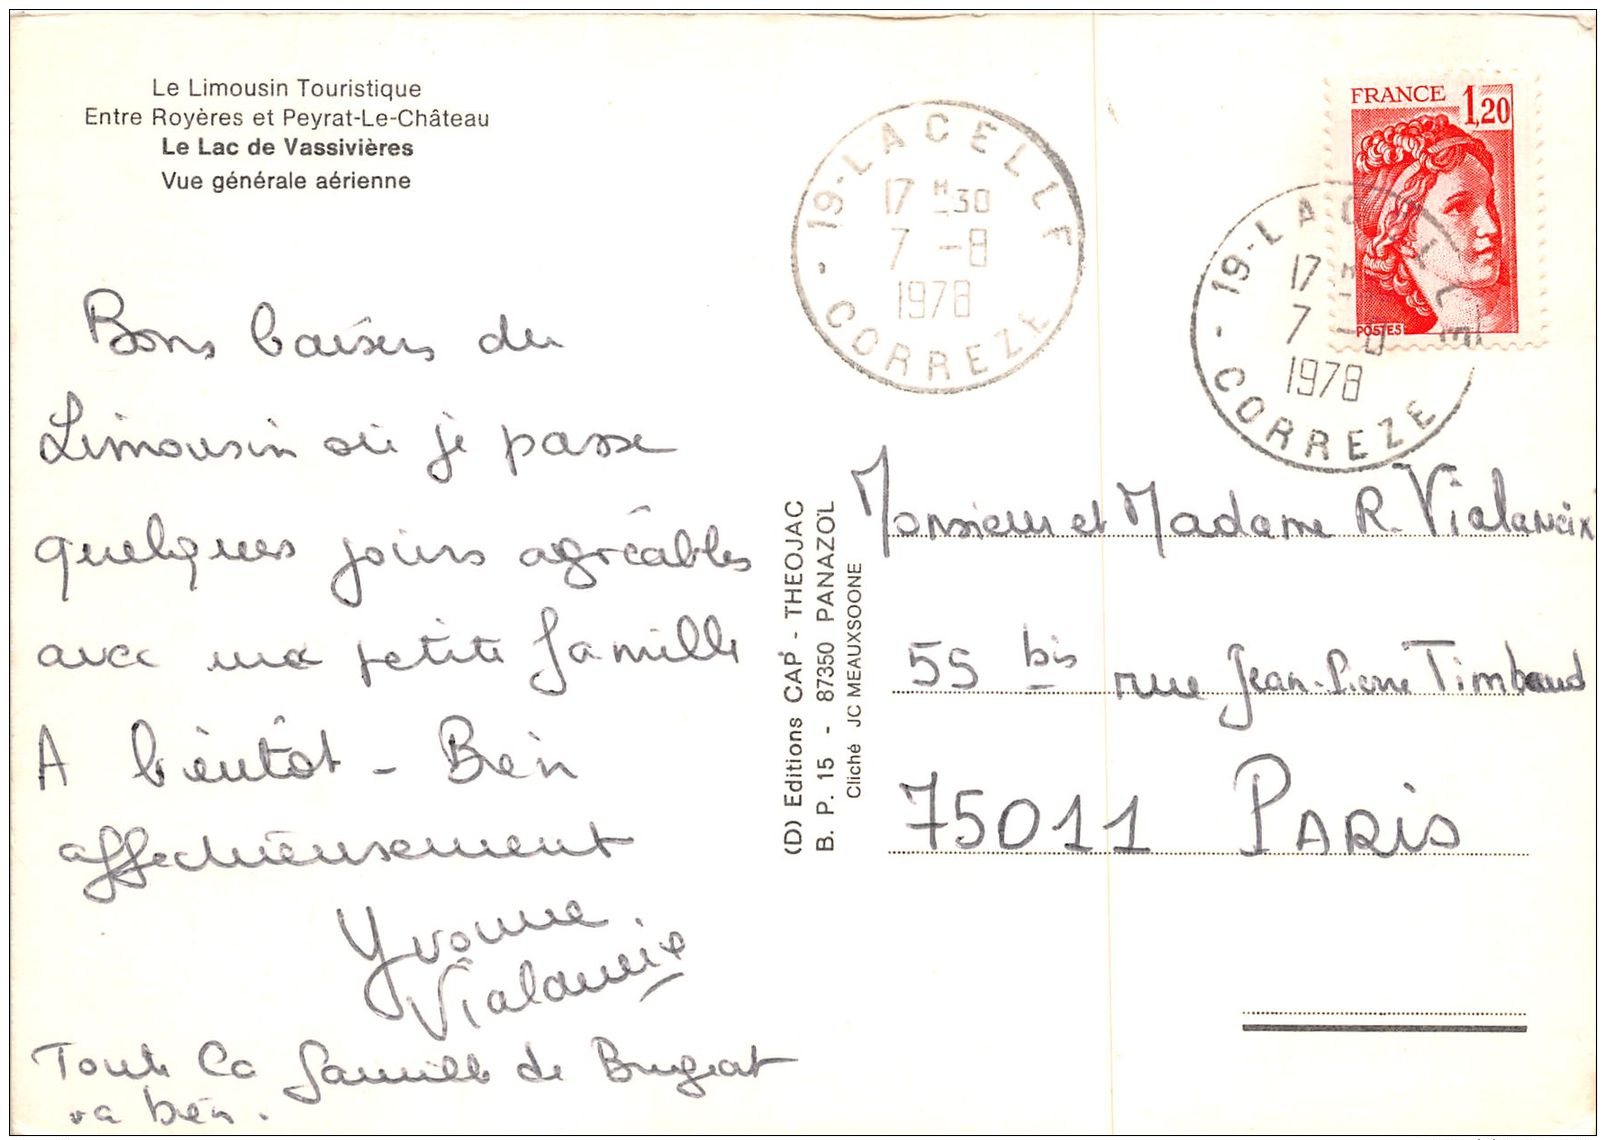 Le Limousin Touristique
Entre Royères et Peyrat-Le-Château
Le Lac de Vassivières
Vue générale aérienne
Bons baisers du
Limousin où je passe
quelques jours agréables
avec ma petite famille
A bientôt - Bien
affectueusement
Yvonne
Vialaneix
Toute la famille de Bugeat
va bien.
(D) Editions CAP - THEOJAC
B. P. 15 - 87350 PANAZOL
Cliché JC MEAUXSOONE
19-LACELLE
17 H 30
7 -8
1978
CORREZE
FRANCE 1,20
POSTES
19-LACELLE
17 H
7 -8
1978
CORREZE
Monsieur et Madame R. Vialaneix
55 bis rue Jean-Pierre Timbaud
75011 PARIS